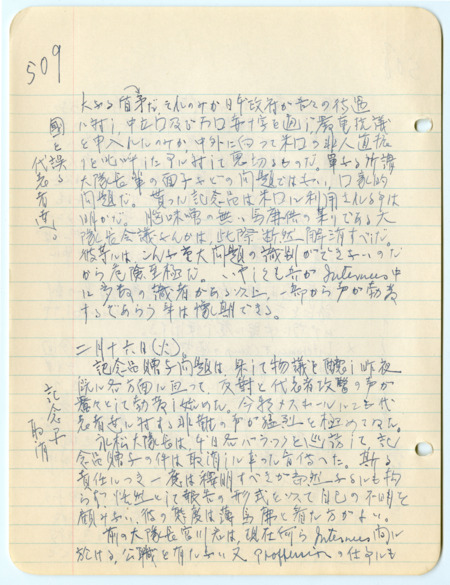 509
國を誤る
代表者達
大いなる盾矛だ それのみか日本政府が吾々の待遇
に対し、中立国及び万国赤十字を通じ厳重抗議
を申入れたのみか、中外に向って米国の非人道振
りを叫んだのに対して
大隊長輩の面子などの問題ではない、国家的
問題だ。貰った記念品は米国に利用される事は
明かだ。脳味噌の無い馬鹿供の集りである大
隊長会議なんかは、此際断然解消すべだ。
彼等にはこんな重大問題の識別ができないのだ
から危険至極だ。いやしくも吾が Internees 中
に多数の識者がある以上、一部から声が勃発
するであらう事は予期できる。
二月十六日(火)
記念品贈与問題は、果して物議を醸し昨夜
既に各方面に亘って、反対と代表者攻撃の声が
囂々として勃発し始めた。今朝メスホールにても代
表者達に対する非難の声が猛烈を極めてゐた。
記念品
取消
永松大隊長は、本日各バラックを巡訪して、記
念品贈与の件は取消した旨傳へた。斯る
責任に就き一應は釋明すべきが当然なるにも拘
らず、恬然として報告の形式を以って自己の不明を
顧みない、彼の態度は薄馬鹿と看た方がよい。
前の大隊長宮川君は、現在何ら Internees 間に
於ける、公職を有たない又 Proffession の仕事にも